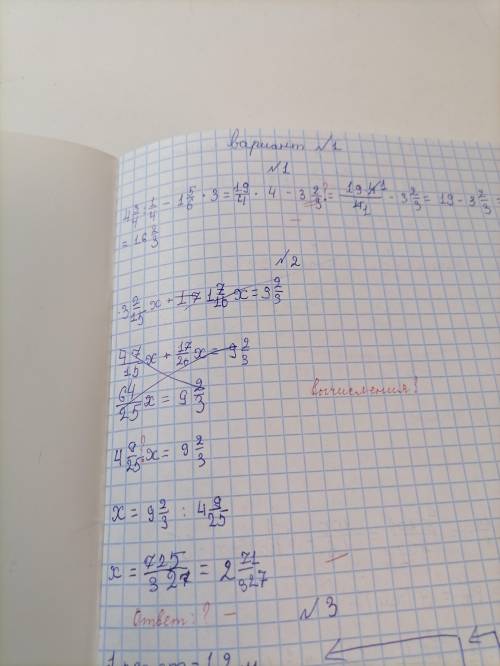 Вариант №1
№1
4 3/4 : 1/4 - 1 5/6 · 3 = 19/4 · 4 - 3 2/3 ? = 19·4 1/4 1 - 3 2/3 = 19 - 3 2/3 =
= 16 2/3
№2
3 2/15 x + 1 7/10 x = 9 2/3
47/15 x + 17/20 x = 9 2/3
64/25 x = 9 2/3
вычисления?
4 9/25 ? x = 9 2/3
x = 9 2/3 : 4 9/25
x = 725/327 = 2 71/327
Ответ: ? -
№3